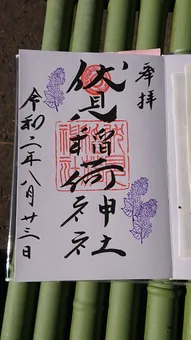 奉拝
伏見稲荷神社
令和二年八月廿三日